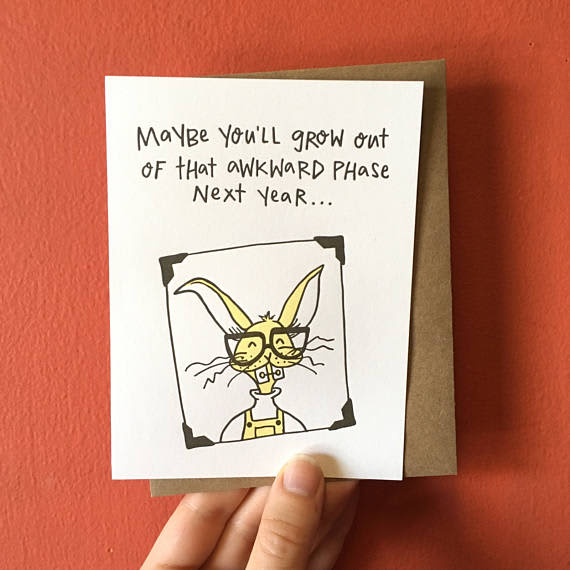 MAYBE YOU'LL GROW OUT
OF tHAt AWKWARD PHASE
NEXt YEAR...